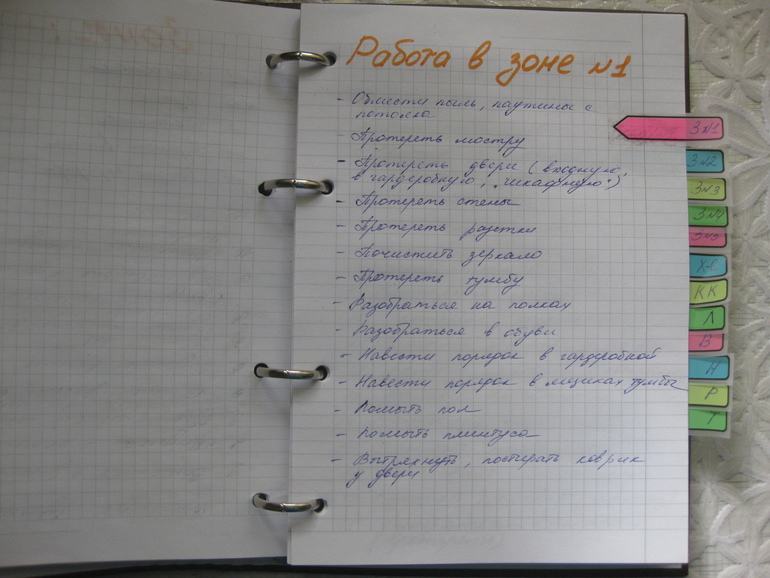 Работа в зоне №1
- Обмести пыль, паутины с
потолка
- Протереть люстру
- Протереть двери (входную,
в гардеробную, "шкафную")
- Протереть стены
- Протереть розетки
- Почистить зеркало
- Протереть тумбу
- Разобраться на полках
- Разобраться в обуви
- Навести порядок в гардеробной
- Навести порядок в ящиках тумбы
- Помыть пол
- Помыть плинтуса
- Вытряхнуть, постирать коврик
у двери
З№1
З№2
З№3
З№4
З№5
КК
Л
В
Н
Р
Т